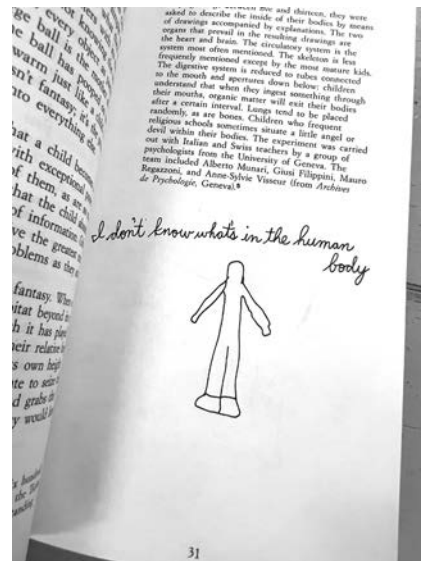 every object
ball is the
ball has popped
warm just like
fantasy; it's the
everything else
that a child
with exceptional
of them, as are
that the child
of information
the greatest
as they
fantasy.
beyond
it has
relative
own
to
grabs
would
five and thirteen, they were
asked to describe the inside of their bodies by means
of drawings accompanied by explanations. The two
organs that prevail in the resulting drawings are
the heart and brain. The circulatory system is the
system most often mentioned. The skeleton is less
frequently mentioned except by the most mature kids.
The digestive system is reduced to tubes connected
to the mouth and apertures down below: children
understand that when they ingest something through
their mouths, organic matter will exit their bodies
after a certain interval. Lungs tend to be placed
randomly, as are bones. Children who frequent
religious schools sometimes situate a little angel or
devil within their bodies. The experiment was carried
out with Italian and Swiss teachers by a group of
psychologists from the University of Geneva. The
team included Alberto Munari, Giusi Filippini, Mauro
Regazzoni, and Anne-Sylvie Visseur (from Archives
de Psychologie, Geneva).⁸
I don't know what's in the human
body
31